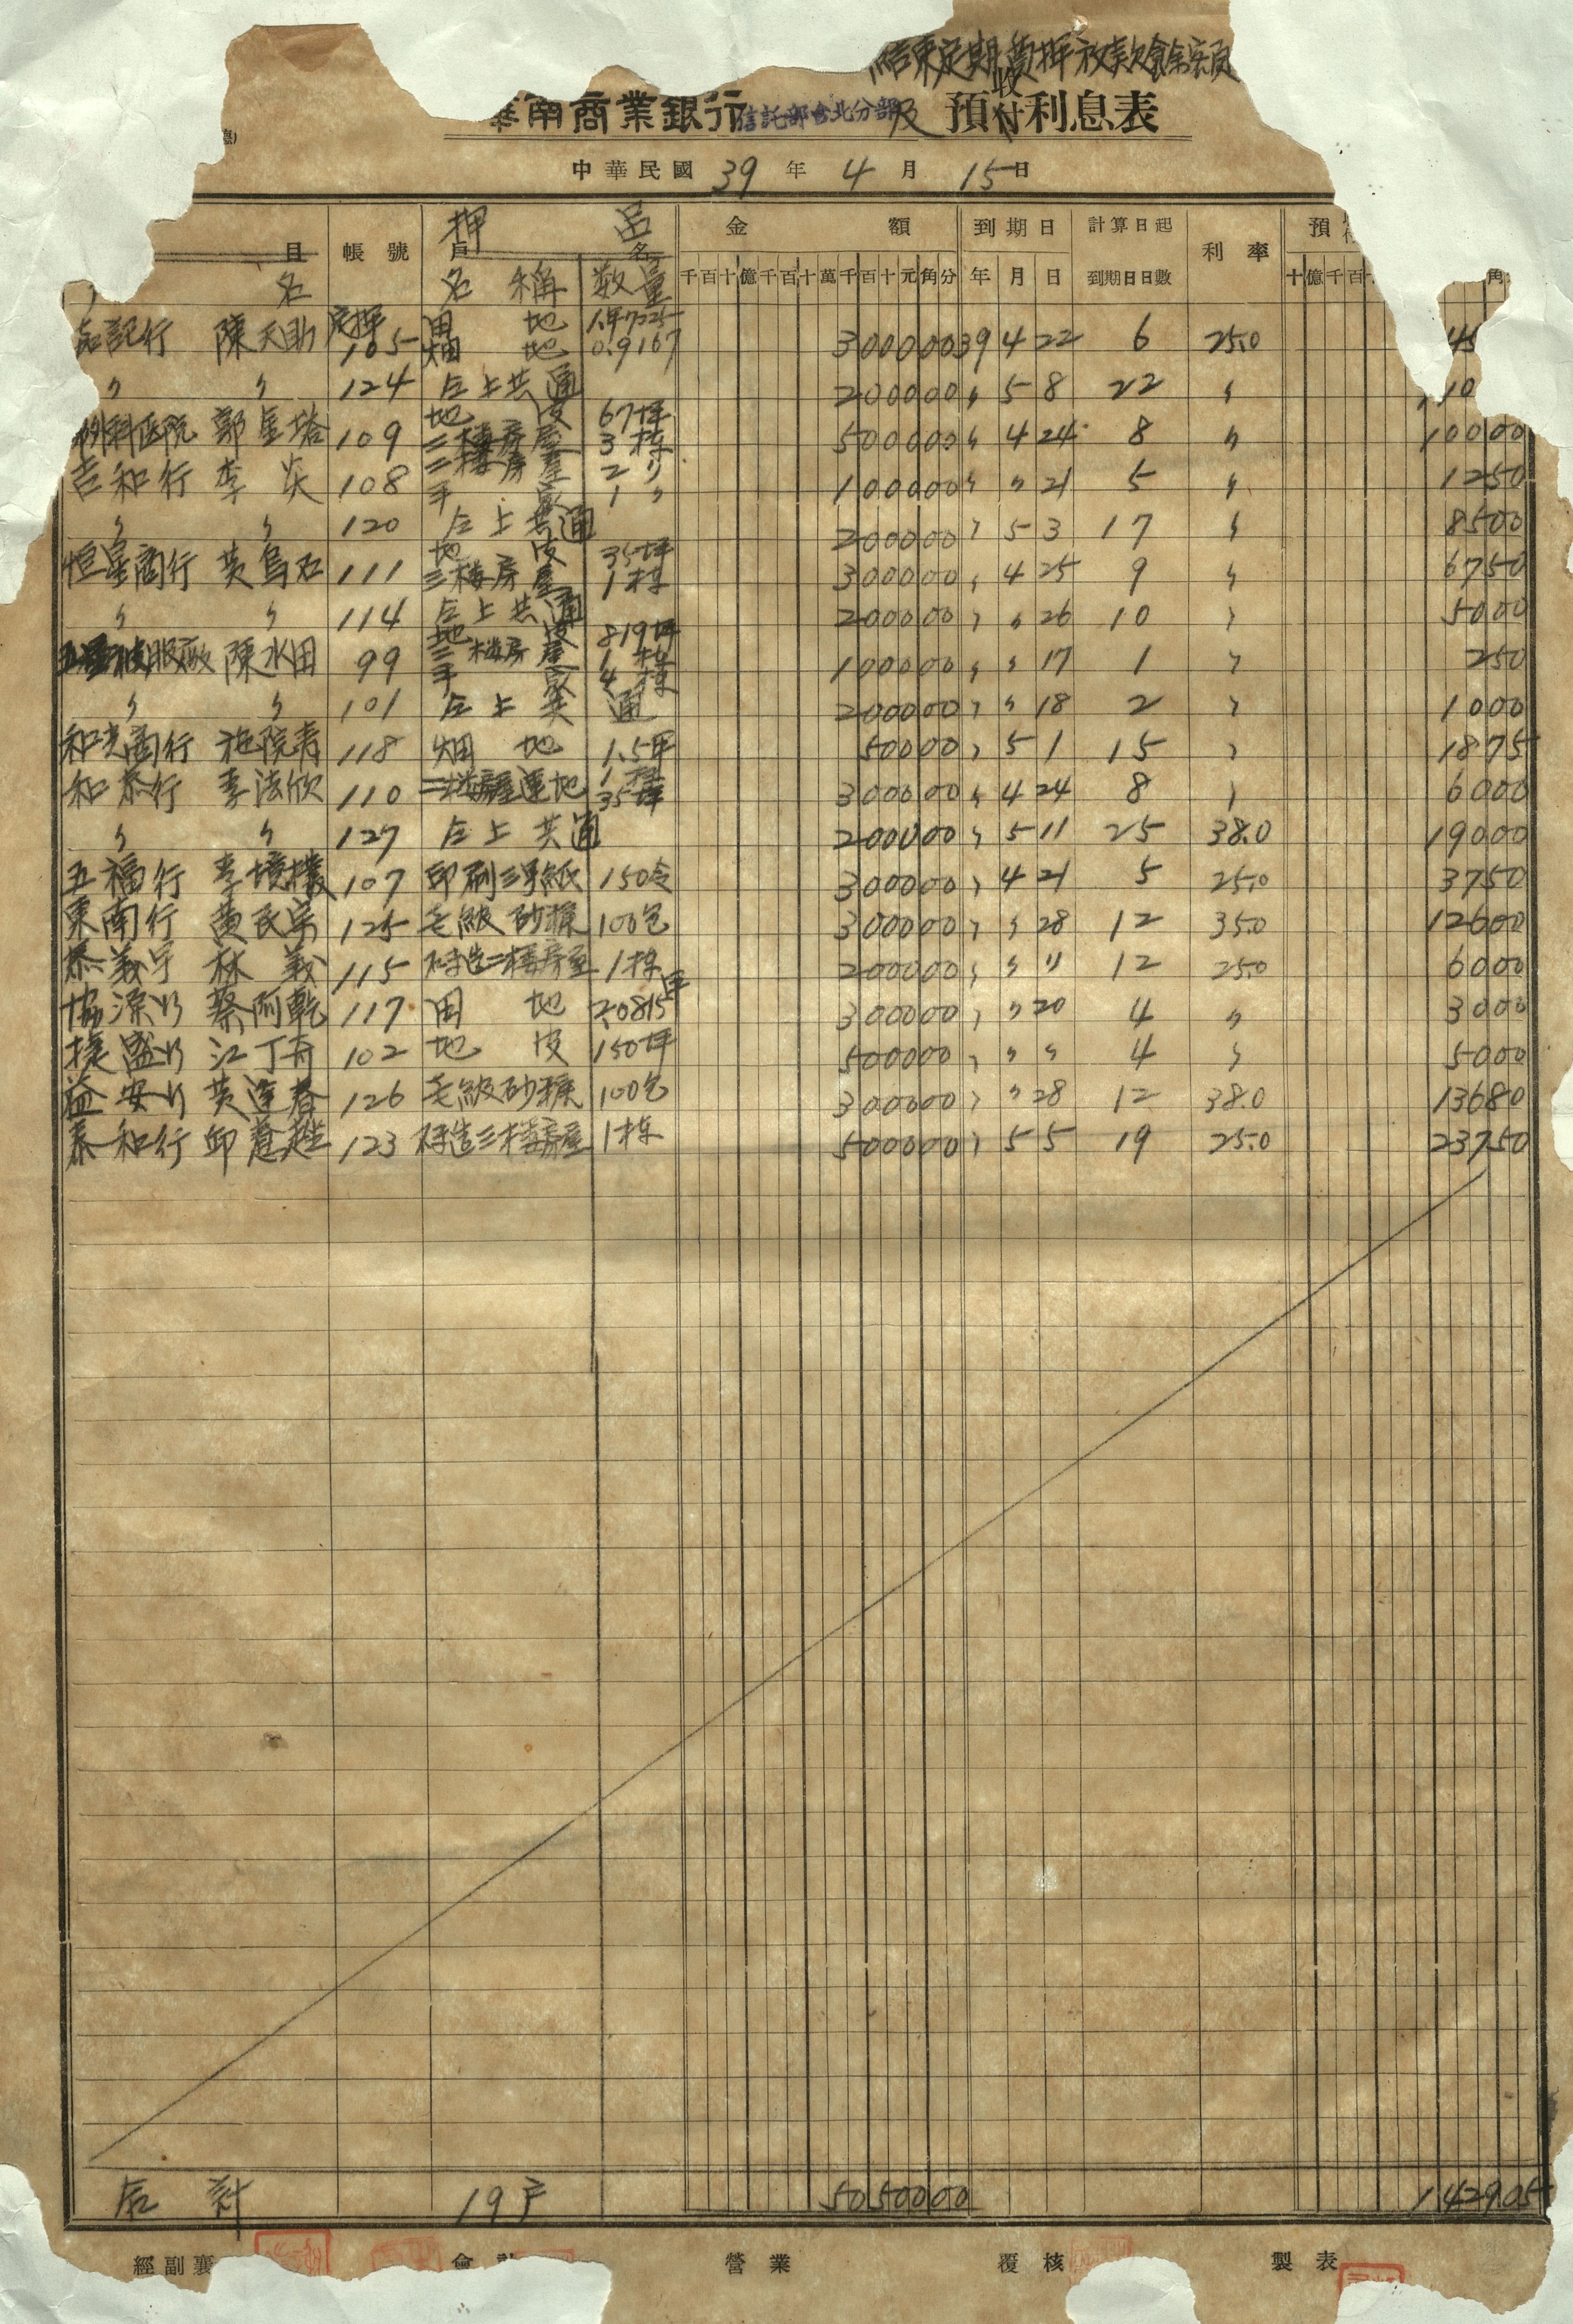 結束定期質押放款餘額
華南商業銀行 信託部台北分部 及 預收付利息表
中華民國 39 年 4 月 15 日
目 帳號 押 品 戶名 金額 到期日 計算日起到期日日數 利率 預
名 名稱 數量 千百十億千百十萬千百十元角分 年月日 十億千百 角
記行 陳天助 定押105 田地 畑地 0.9167 300000 39 4 22 6 25.0 45
〃 〃 124 仝上共通 200000 〃 5 8 22 〃 110
外科医院 郭星塔 109 地皮 67坪 二楼房屋 3栋 500000 〃 4 24 8 〃 10000
吉和行 李炎 108 二楼房屋 2〃 平家 1〃 100000 〃 〃 21 5 〃 1250
〃 〃 120 仝上共通 200000 〃 5 3 17 〃 8500
恒星商行 黃烏石 111 地皮 35坪 三楼房屋 1栋 300000 〃 4 25 9 〃 6750
〃 〃 114 仝上共通 200000 〃 〃 26 10 〃 5000
被服厰 陳水田 99 地皮 819坪 二楼房屋 1栋 平家 4栋 100000 〃 〃 17 1 〃 250
〃 〃 101 仝上共通 200000 〃 〃 18 2 〃 1000
和光商行 118 畑地 1.5甲 50000 〃 5 1 15 〃 1875
和泰行 李法欣 110 二楼房屋連地 1栋 35坪 300000 〃 4 24 8 〃 6000
〃 〃 127 仝上共通 200000 〃 5 11 25 38.0 19000
五福行 李 107 印刷 紙 150令 300000 〃 4 21 5 25.0 3750
東南行 黃民宗 125 毛級砂糖 100包 300000 〃 〃 28 12 35.0 12600
泰義 林義 115 磚造二楼房屋 1栋 200000 〃 〃 〃 12 25.0 6000
協源〃 蔡阿乾 117 田地 2.0815甲 300000 〃 〃 20 4 〃 3000
捷盛〃 江丁 102 地皮 150坪 500000 〃 〃 〃 4 〃 5000
益安〃 黃連春 126 毛級砂糖 100包 300000 〃 〃 28 12 38.0 13680
泰和行 邱 123 磚造三楼房屋 1栋 500000 〃 5 5 19 25.0 23750
合計 19戶 5050000 142905
經副襄 會計 營業 覆核 製表